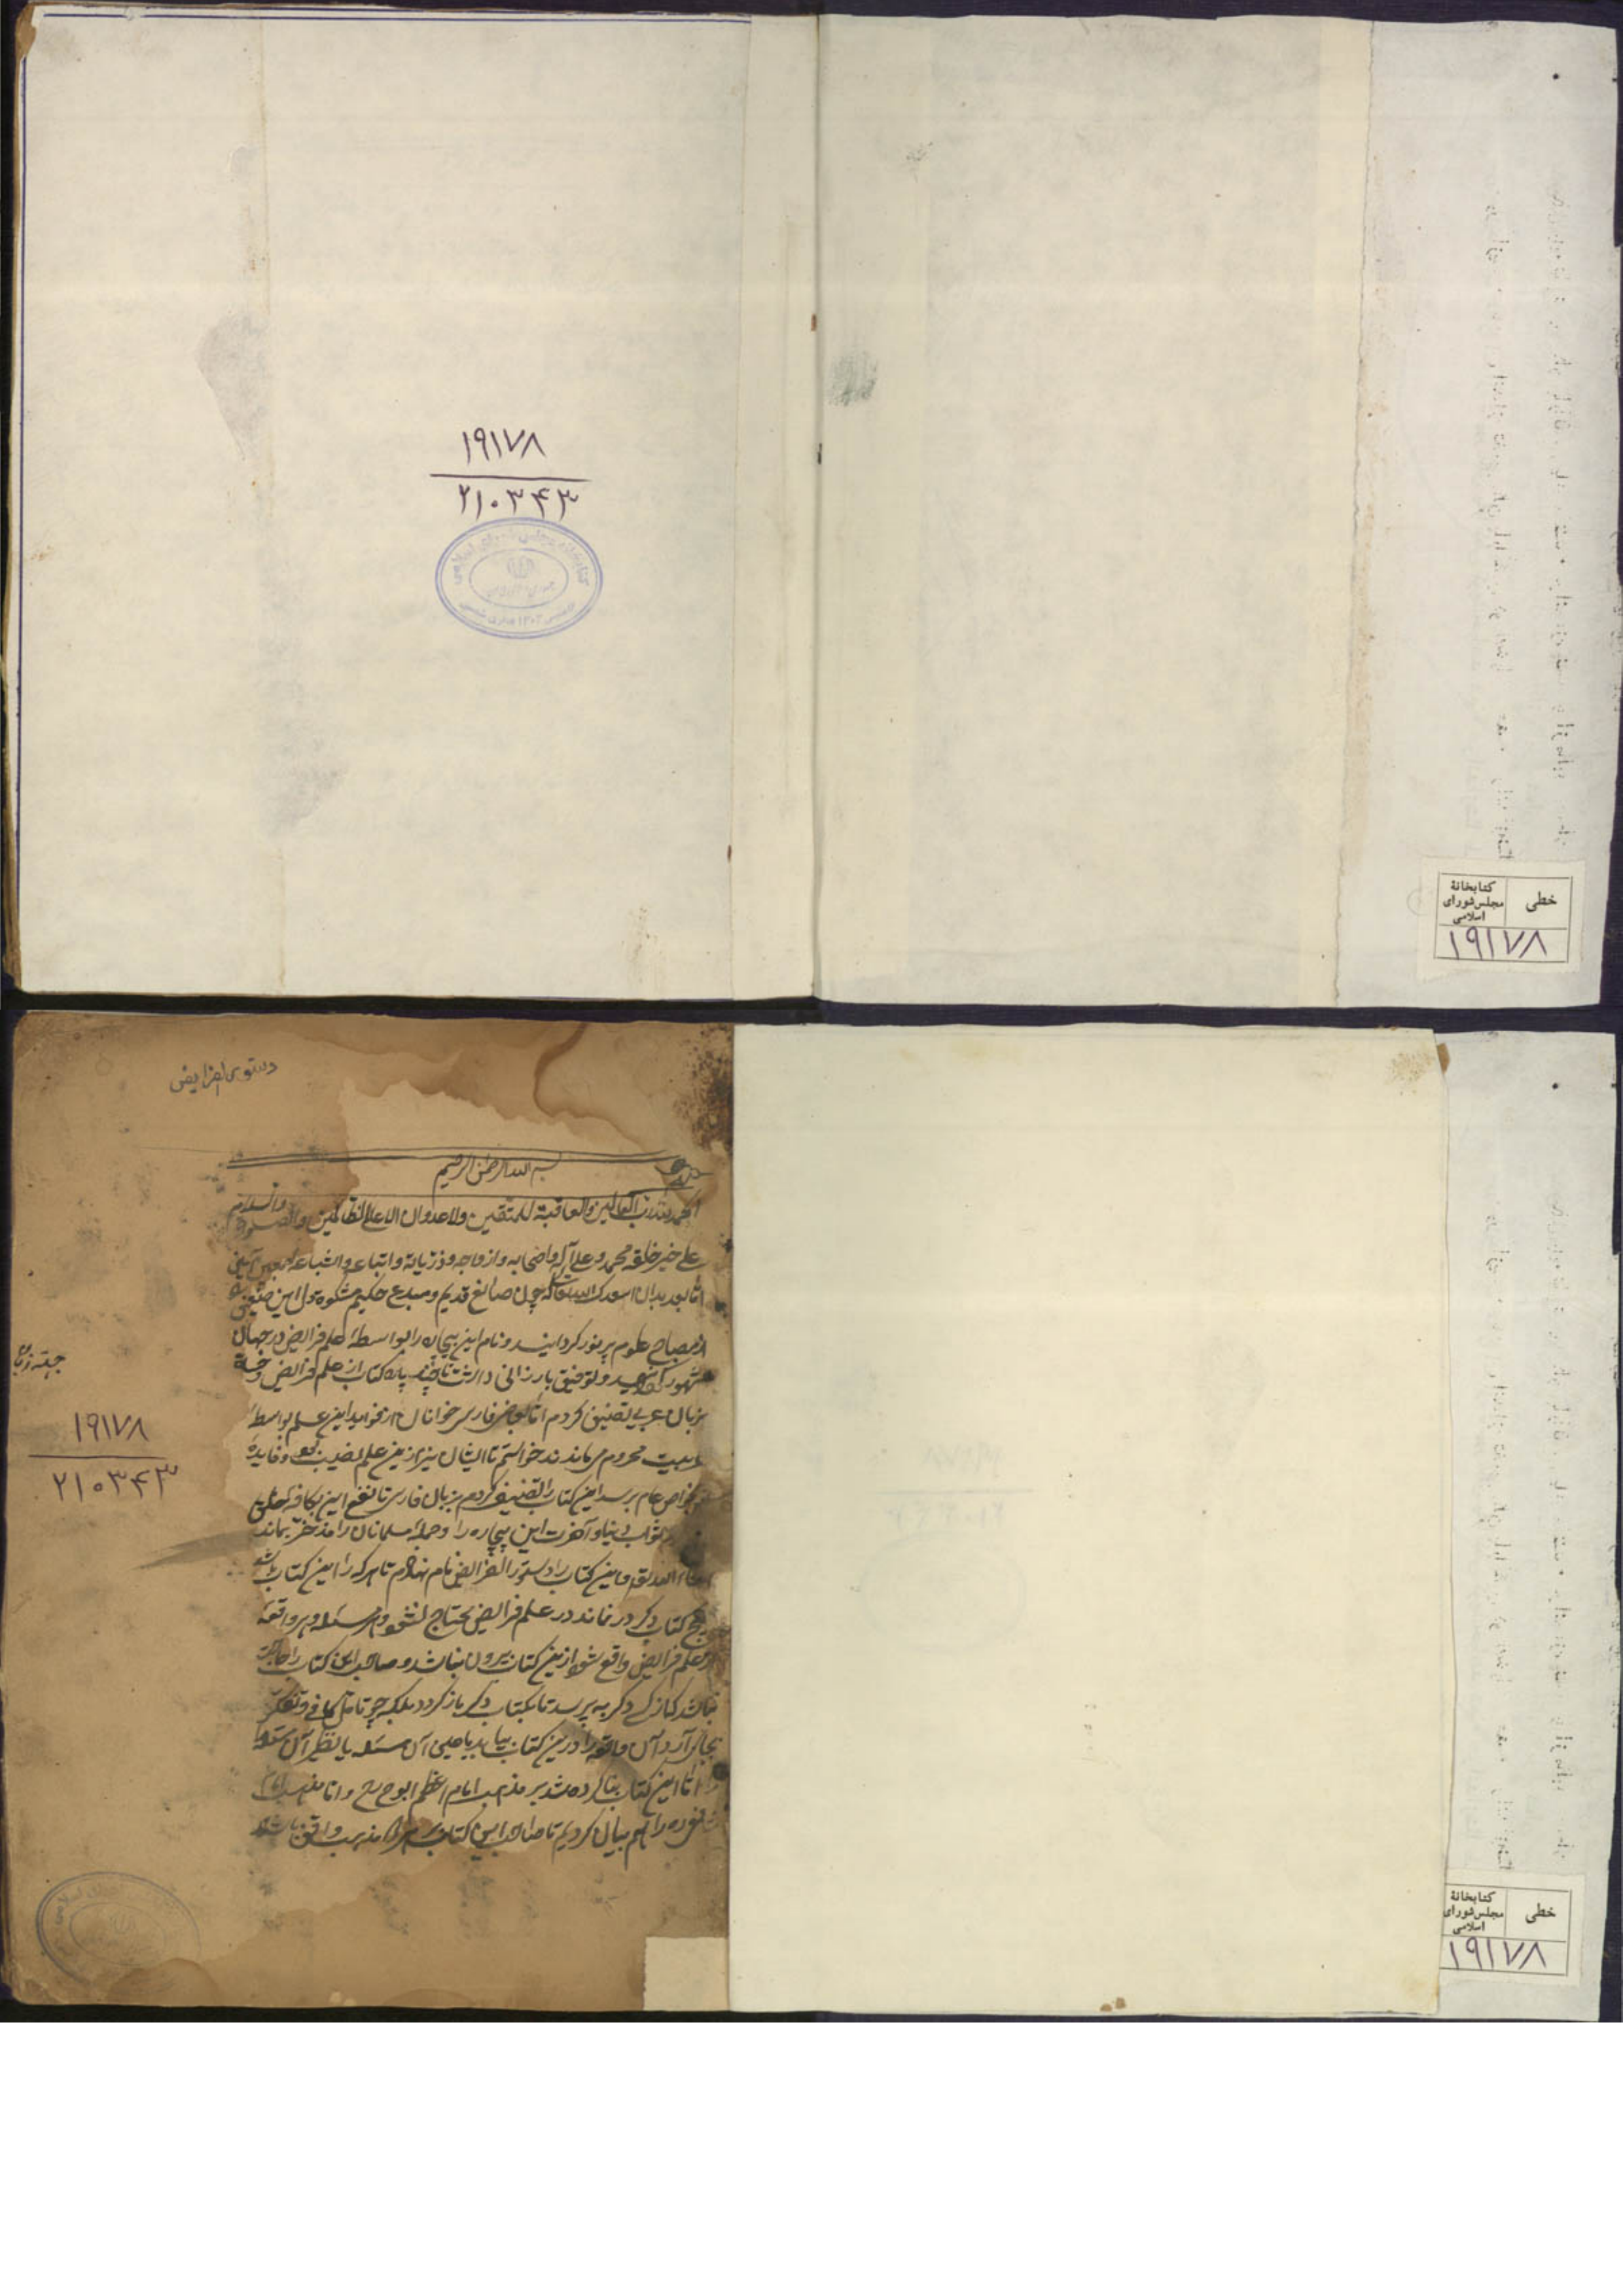 ۱۹۱۷۸
۲۱۰۳۴۳
خطی
کتابخانهٔ
مجلس شورای
اسلامی
۱۹۱۷۸
دستور الفرایض
بسم الله الرحمن الرحیم
الحمد لله رب العالمین والعاقبة للمتقین ولا عدوان الا علی الظالمین والصلوة والسلام
علی خیر خلقه محمد وعلی آله واصحابه وازواجه وذریاته واتباعه واشیاعه اجمعین
اما بعد بدان اسعدک الله تعالی که چون صانع قدیم ومبدع حکیم مشکوة دل این ضعیف
از مصباح علوم پر نور گردانید ونام این بیچاره را بواسطهٔ علم فرایض در جهان
مشهور وتوفیق بارزانی داشت تا چند پاره کتاب از علم فرایض
بزبان عربی تصنیف کردم اما بعضی فارسی خوانان از فواید این علم بواسطهٔ
عربیت محروم می ماندند خواستم تا ایشان نیز ازین علم نصیب وفایده
بخواص عام برسد این کتاب را تصنیف کردم بزبان فارسی تا نفع این بکافهٔ خلق
ثواب دنیا وآخرت این بیچاره را وجمله مسلمانان را مدخر بماند
واین کتاب را دستور الفرایض نام نهادم تا هر که را این کتاب باشد
هیچ کتاب دگر در نماند در علم فرایض محتاج نشود وهر مسئله وهر واقعه
از علم فرایض واقع شود ازین کتاب بیرون نباشد وصاحب این کتاب را حاجت
نباشد که از کسی دگر بپرسد تا بکتاب دگر باز گردد بلکه چو تامل کافی وتفکر
بجای آرد آن واقعه را درین کتاب بیابد یا عین آن مسئله یا نظیر آن مسئله
اما این کتاب بنا کرده شد بر مذهب امام اعظم ابوح رح واما مذهب امام
شافعی ره را هم بیان کردیم تا صاحب این کتاب بر هر مذهب واقف باشد
۱۹۱۷۸
۲۱۰۳۴۳
خطی
کتابخانهٔ
مجلس شورای
اسلامی
۱۹۱۷۸